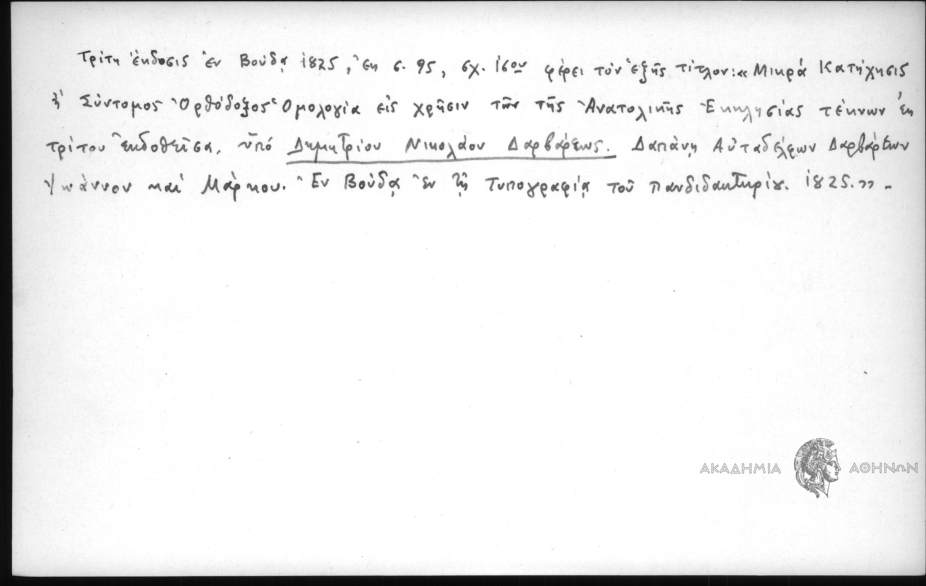 Τρίτη ἔκδοσις ἐν Βούδᾳ 1825, ἐκ σ. 95, σχ. 16ου φέρει τὸν ἑξῆς τίτλον: «Μικρὰ Κατήχησις
ἢ Σύντομος Ὀρθόδοξος Ὁμολογία εἰς χρῆσιν τῶν τῆς Ἀνατολικῆς Ἐκκλησίας τέκνων ἐκ
τρίτου ἐκδοθεῖσα, ὑπὸ Δημητρίου Νικολάου Δαρβάρεως. Δαπάνῃ Αὐταδέλφων Δαρβάρεων
Ἰωάννου καὶ Μάρκου. Ἐν Βούδᾳ ἐν τῇ Τυπογραφίᾳ τοῦ Πανδιδακτηρίου. 1825.» -
ΑΚΑΔΗΜΙΑ ΑΘΗΝΩΝ